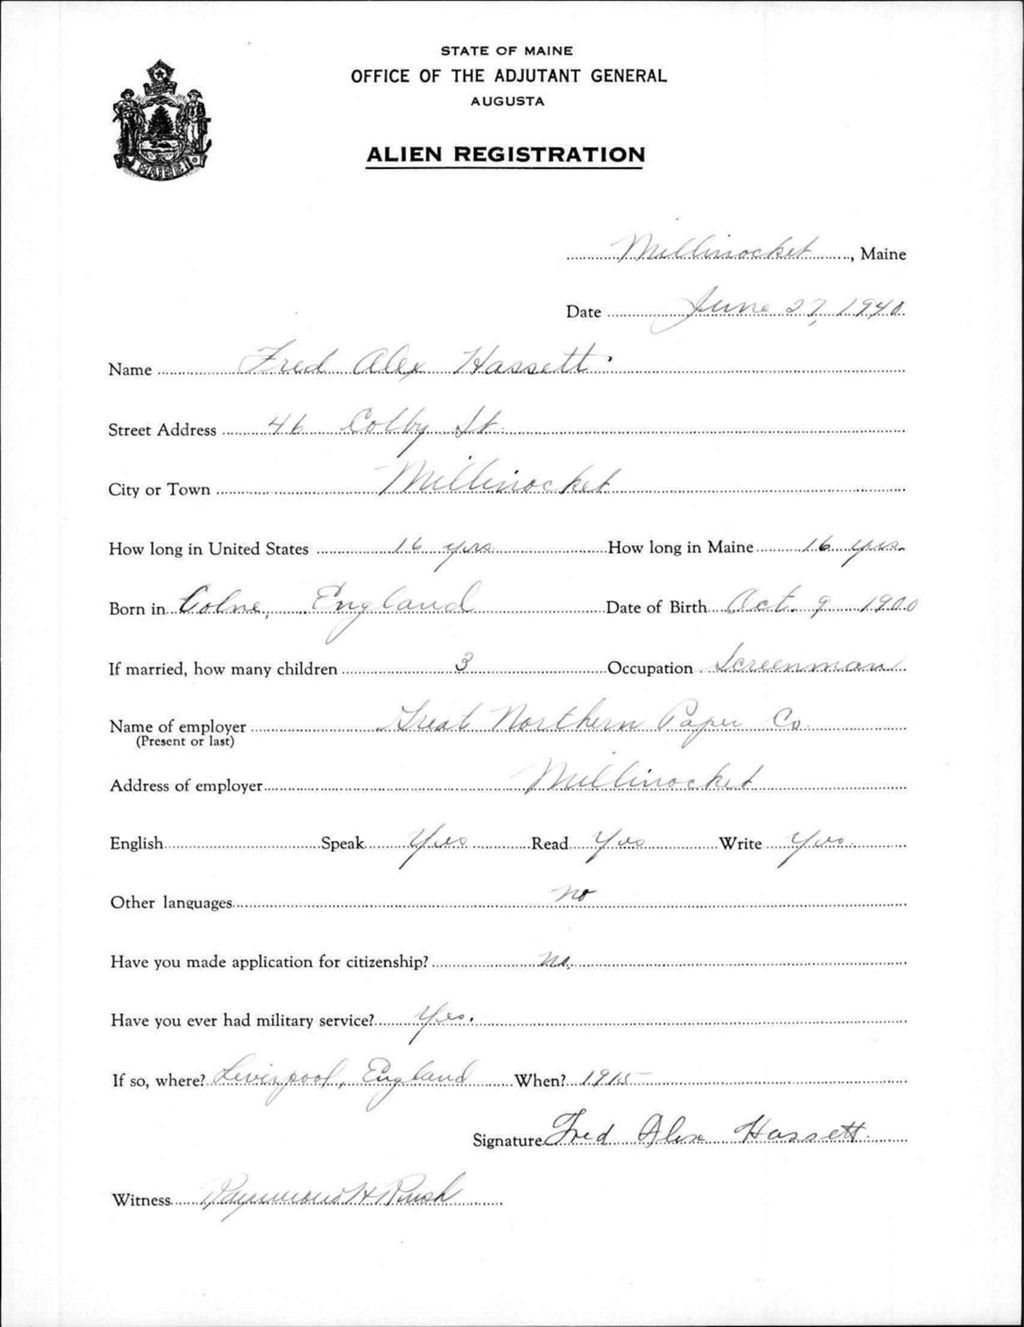 STATE OF MAINE
OFFICE OF THE ADJUTANT GENERAL
AUGUSTA
ALIEN REGISTRATION
MAINE
Millinocket, Maine
Date June 27, 1940
Name Fred Alex Hassett
Street Address 46 Colby St.
City or Town Millinocket
How long in United States 16 yrs How long in Maine 16 yrs.
Born in Colne, England Date of Birth Oct. 9 1900
If married, how many children 3 Occupation Screenman
Name of employer Great Northern Paper Co.
(Present or last)
Address of employer Millinocket
English Speak Yes Read Yes Write Yes
Other languages no
Have you made application for citizenship? no.
Have you ever had military service? Yes.
If so, where? Liverpool, England When? 1915
Signature Fred Alex Hassett
Witness Raymond H Rush